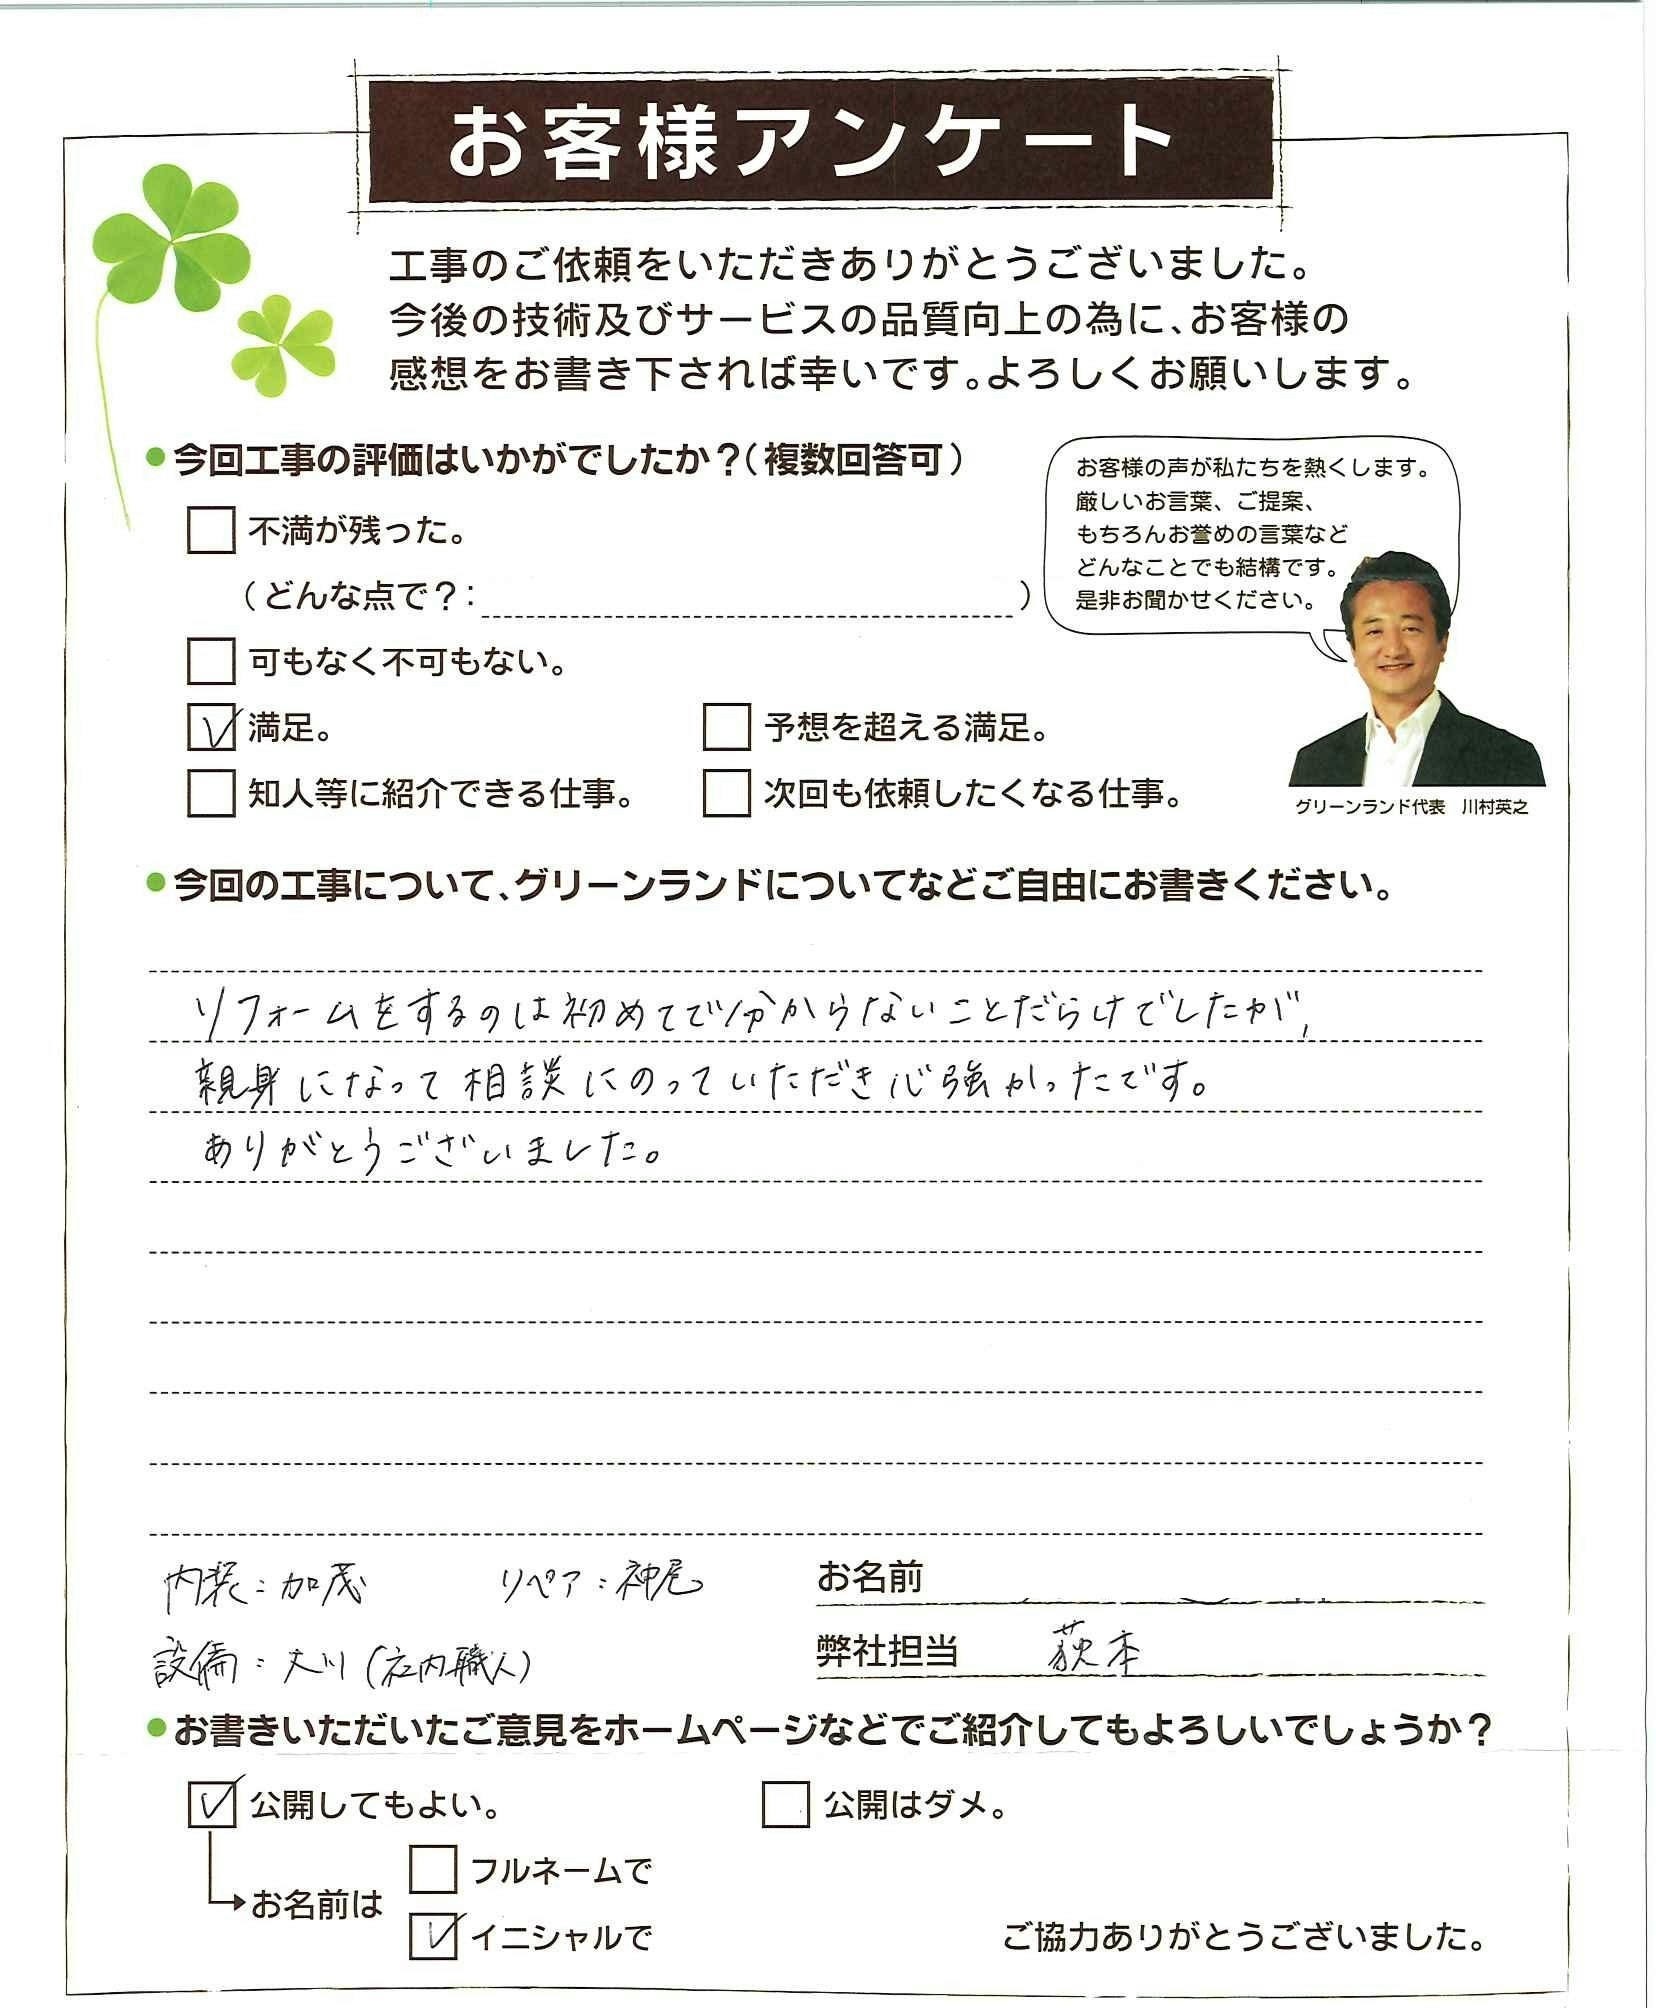 お客様アンケート
工事のご依頼をいただきありがとうございました。
今後の技術及びサービスの品質向上の為に、お客様の
感想をお書き下されば幸いです。よろしくお願いします。
●今回工事の評価はいかがでしたか？（複数回答可）
不満が残った。
（どんな点で？：　）
可もなく不可もない。
満足。　予想を超える満足。
知人等に紹介できる仕事。　次回も依頼したくなる仕事。
お客様の声が私たちを熱くします。
厳しいお言葉、ご提案、
もちろんお誉めの言葉など
どんなことでも結構です。
是非お聞かせください。
グリーンランド代表　川村英之
●今回の工事について、グリーンランドについてなどご自由にお書きください。
リフォームをするのは初めてで分からないことだらけでしたが、
親身になって相談にのっていただき心強かったです。
ありがとうございました。
内装：加茂　リペア：神尾
設備：大川（社内職人）
お名前
弊社担当　荻本
●お書きいただいたご意見をホームページなどでご紹介してもよろしいでしょうか？
公開してもよい。　公開はダメ。
お名前は
フルネームで
イニシャルで
ご協力ありがとうございました。